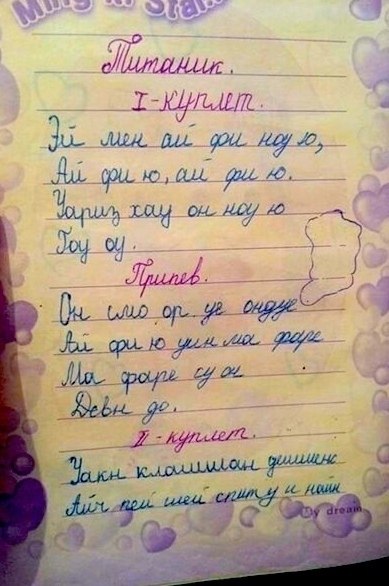 Титаник.
I-куплет.
Эй мен ай фи ноу ю,
Ай фи ю, ай фи ю.
Уариз хау он ноу ю
Гоу оу.
Припев.
Он смо ор уе ондуе
Ай фи ю уин ма фаре
Ма фаре су он
Девн до.
II-куплет.
Уакн клашиан дешиенс
Айч пей шей спит у и найн
My dream